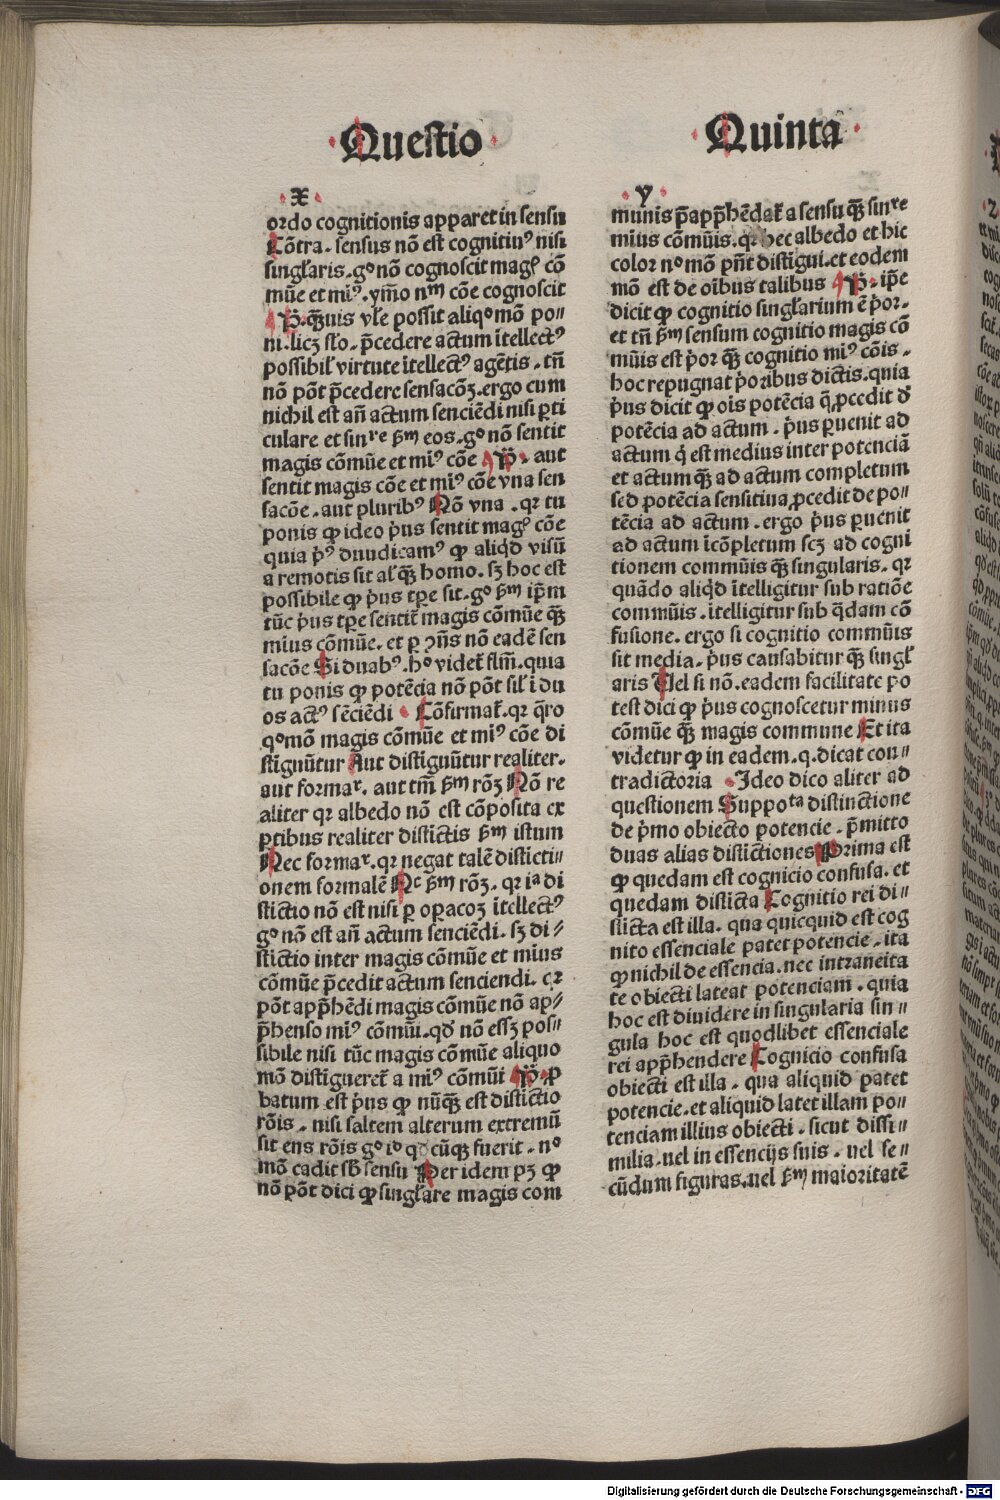 Questio
Quinta
x
ordo cognitionis apparet in sensu
Cōtra. sensus nō est cognitiuꝰ nisi
singl'aris. gº nō cognoscit magꝭ cō
mūe et miꝰ. ymo nᵐ cōe cognoscit
ꝙ̄uis vl'e possit aliqºmō po⸗
ni. licꝫ sl'o. p̄cedere actum ītellectꝰ
possibil' virtute ītellectꝰ agētis. tn̄
nō pōt p̄cedere sensacōꝫ. ergo cum
nichil est añ actum senciēdi nisi ꝑti
culare et sinʳᵉ ẜm eos. gº nō sentit
magis cōmūe et miꝰ cōe aut
sentit magis cōe et miꝰ cōe vna sen
sacōe. aut pluribꝰ Nō vna. qꝛ tu
ponis ꝙ ideo pͥus sentit magꝭ cōe
quia pͥꝰ diiudicamꝰ ꝙ aliqd̓ visū
a remotis sit al' ꝙ̄ homo. sꝫ hoc est
possibile ꝙ pͥus tꝑe sit. gº ẜm ip̄m
tūc pͥus tꝑe sentiret̄ magis cōmūe ꝙ̄
minus cōmūe. et ꝑ ꝯn̄s nō eadē sen
sacōe Si duabꝰ. hº videt̄ flm̄. quia
tu ponis ꝙ potēcia nō pōt sil' ī du
os actꝰ sēciēdi Cōfirmat̄. qꝛ q̄ro
qºmō magis cōmūe et miꝰ cōe di
stīguūtur Aut distīguūtur realiter.
aut formaʳ. aut tm̄ ẜm rōꝫ Nō re
aliter qꝛ albedo nō est cōposita ex
ꝑtibus realiter distīctis ẜm istum
Nec formaʳ. qꝛ negat talē distīcti⸗
onem formalē Nᶜ ẜm rōꝫ. qꝛ iᵃ di
stīctio nō est nisi ꝑ oꝑacōꝫ ītellectꝰ
gº nō est añ actum senciēdi. sꝫ di⸗
stīctio inter magis cōmūe et minus
cōmūe p̄cedit actum senciendi. et
pōt app̄hēdi magis cōmūe nō ap⸗
p̄henso miꝰ cōmūi. qd̓ nō essꝫ pos⸗
sibile nisi tūc magis cōmūe aliquo
mō distīgueret̄ a miꝰ cōmūi ꝓ
batum est pͥus ꝙ nūꝙ̄ est distīctio
rōis. nisi saltem alterum extremū
sit ens rōis gº iº qd̓cūqꝫ fuerit. nº
mō cadit sb̄ sensu Per idem pꝫ ꝙ
nō pōt dici ꝙ singl'are magis com
y
munis p̄app̄hēdat̄ a sensu ꝙ̄ sinʳᵉ
minus cōmūis. qꝛ hec albedo et hic
color nº mō pn̄t distīgui. et eodem
mō est de oībus talibus ip̄e
dicit ꝙ cognitio singl'arium ē pͥor.
et tn̄ ẜm sensum cognitio magis cō
mūis est pͥor ꝙ̄ cognitio miꝰ cōis.
hoc repugnat pͥoribus dictis. quia
pͥus dicit ꝙ oīs potēcia q̄ ꝓcedit d̓
potēcia ad actum. pͥus ꝑuenit ad
actum qͥ est medius inter potenciā
et actum ꝙ̄ ad actum completum
sed potēcia sensitiua ꝓcedit de po⸗
tēcia ad actum. ergo pͥus ꝑuenit
ad actum īcōpletum scꝫ ad cogni
tionem commūis ꝙ̄ singularis. qꝛ
quādo aliqd̓ ītelligitur sub ratiōe
commūis. ītelligitur sub q̄dam cō
fusione. ergo si cognitio commūis
sit media. pͥus causabitur ꝙ̄ singl'
aris Uel si nō. eadem facilitate po
test dici ꝙ pͥus cognoscetur minus
cōmūe ꝙ̄ magis commune Et ita
videtur ꝙ in eadem. q. dicat con⸗
tradictoria Ideo dico aliter ad
questionem Suppoᵗᵃ distinctione
de pͥmo obiecto potencie. p̄mitto
duas alias distīctiones Prima est
ꝙ quedam est cognicio confusa. et
quedam distīcta Cognitio rei di⸗
stīcta est illa. qua quicquid est cog
nito essenciale patet potencie. ita
ꝙ nichil de essencia. nec intraneita
te obiecti lateat potenciam. quia
hoc est diuidere in singularia sin⸗
gula hoc est quodlibet essenciale
rei app̄hendere Cognicio confusa
obiecti est illa. qua aliquid patet
potencie. et aliquid latet illam po⸗
tenciam illius obiecti. sicut dissi⸗
milia. uel in essencijs suis. uel se⸗
cūdum figuras. uel ẜm maioritatē
Digitalisierung gefördert durch die Deutsche Forschungsgemeinschaft - DFG